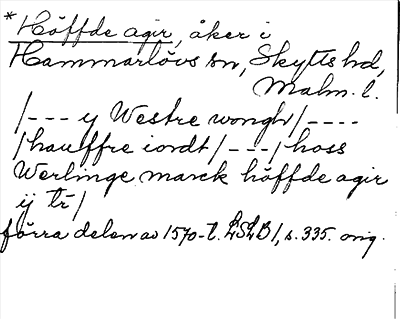 *Höffde agir, åker i
Hammarlövs sn, Skytts hd,
Malm. l.
/--- y Westre wongh/----
/hauffre iordt/---/hoss
Werlinge marck höffde agir
ij tr/
förra delen av 1570-t. LSLB1, s. 335. orig.